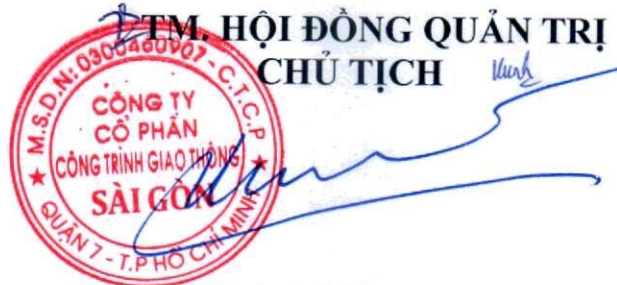 TM. HỘI ĐỒNG QUẢN TRỊ
CHỦ TỊCH
M.S.D.N: 0300460907 - C.T.C.P
CÔNG TY
CỔ PHẦN
CÔNG TRÌNH GIAO THÔNG
SÀI GÒN
QUẬN 7 - T.P HỒ CHÍ MINH